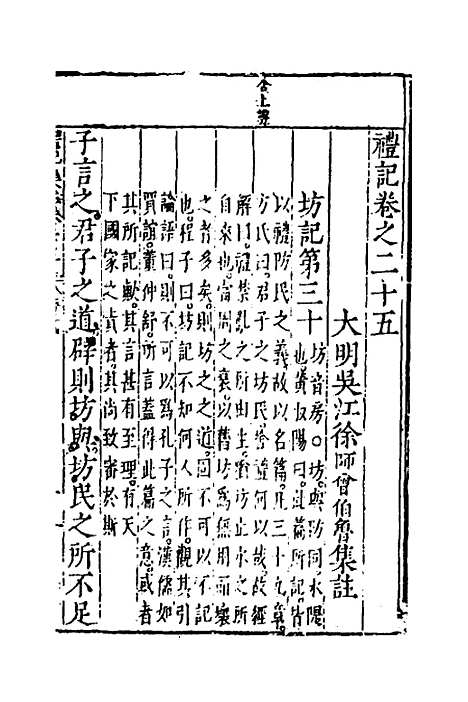 禮記卷之二十五
大明吳江徐師曾伯魯集註
坊記第三十
坊音房○坊與防同水隄
也黃叔陽曰此篇所記皆
以禮防民之義故以名篇凡三十九章
方氏曰君子之坊民豈禮何以哉故經
解曰禮禁亂之所由生猶坊止水之所
自來也當周之衰以舊坊爲無用而壞
之者多矣則坊之之道固不可以不記
也程子曰坊記不知何人所作觀其引
論語曰則不可以爲孔子之言漢儒如
賈誼董仲舒所言蓋得此篇之意或者
其所記歟其言甚有至理有天
下國家之責者其尚致審於斯
子言之君子之道辟則坊與坊民之所不足